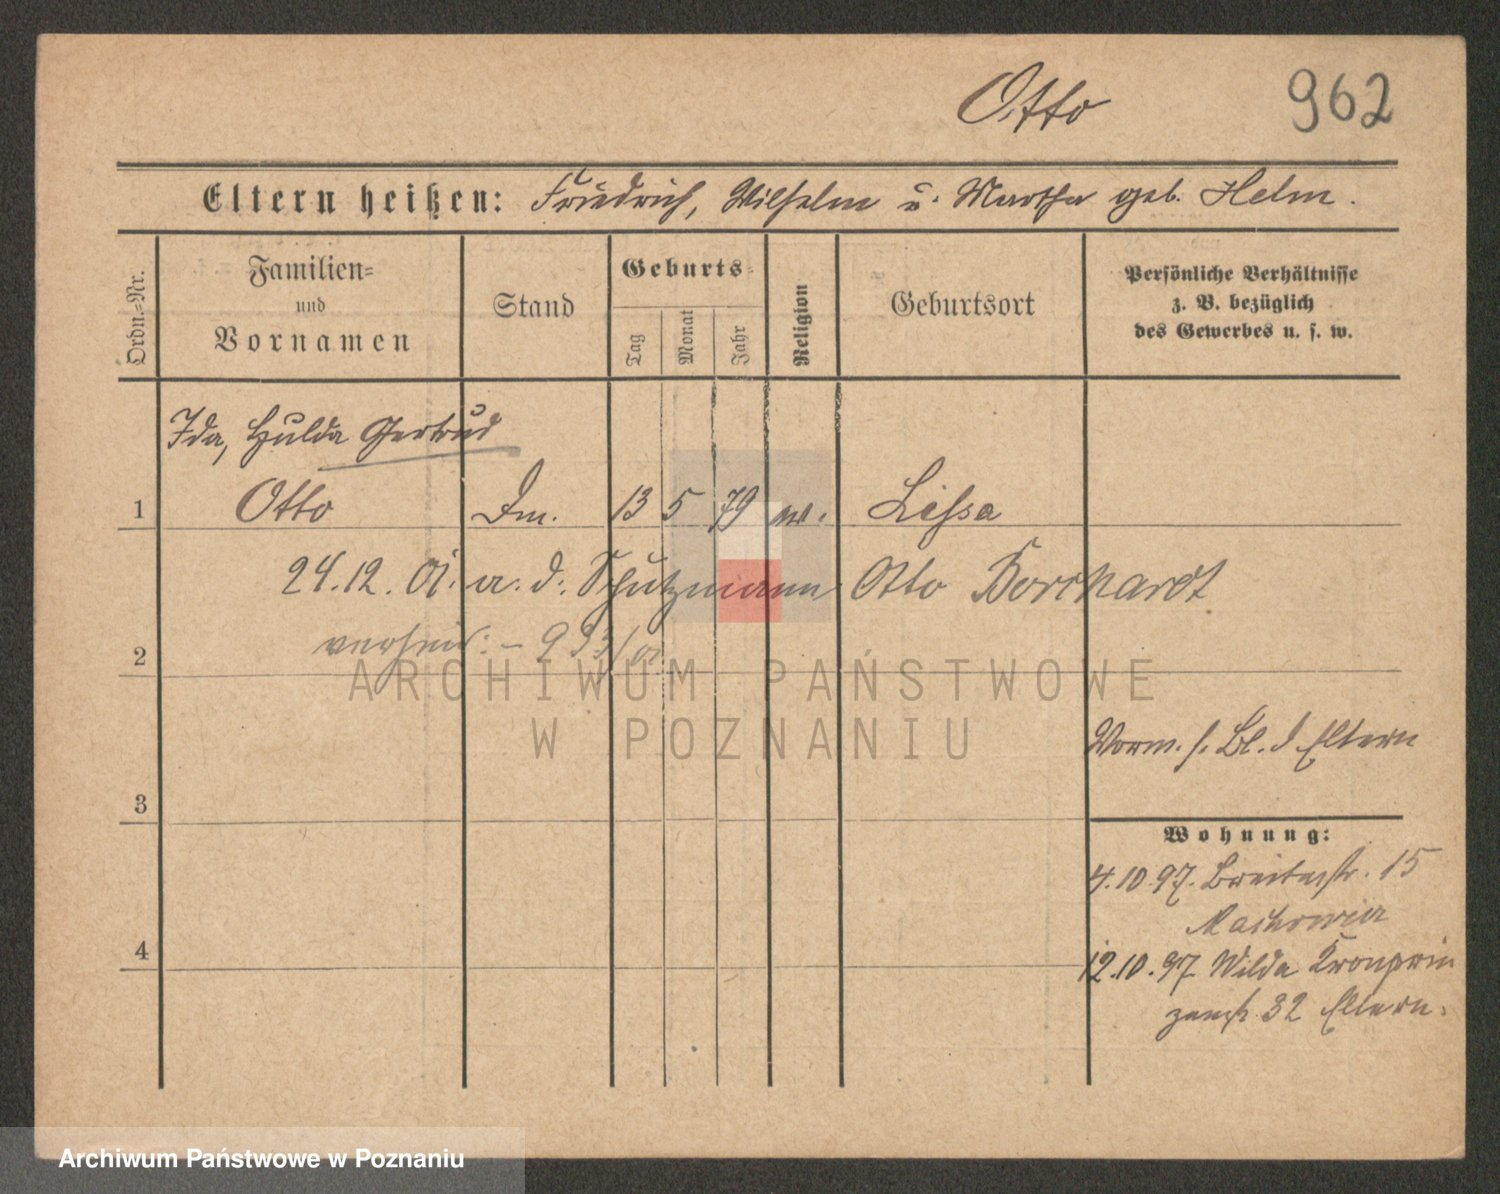 Otto 962
Eltern heißen: Friedrich, Wilhelm u. Martha geb. Helm.
Ordn.-Nr.
Familien-
und
Vornamen
Stand
Geburts-
Tag
Monat
Jahr
Religion
Geburtsort
Persönliche Verhältnisse
z. B. bezüglich
des Gewerbes u. s. w.
Ida, Hulda Gertrud
1 Otto Dm. 13 5 79 Lissa
24.12. 01. a. d. Schutzmann Otto Borchardt
verheir: - 993/01
2
ARCHIWUM PAŃSTWOWE
W POZNANIU
Vorm. s. Bl. d Eltern
3
Wohnung:
4.10.97. Breitestr. 15
4
12.10.97 Wilda Kronprin
zenstr. 32 Eltern.
Archiwum Państwowe w Poznaniu